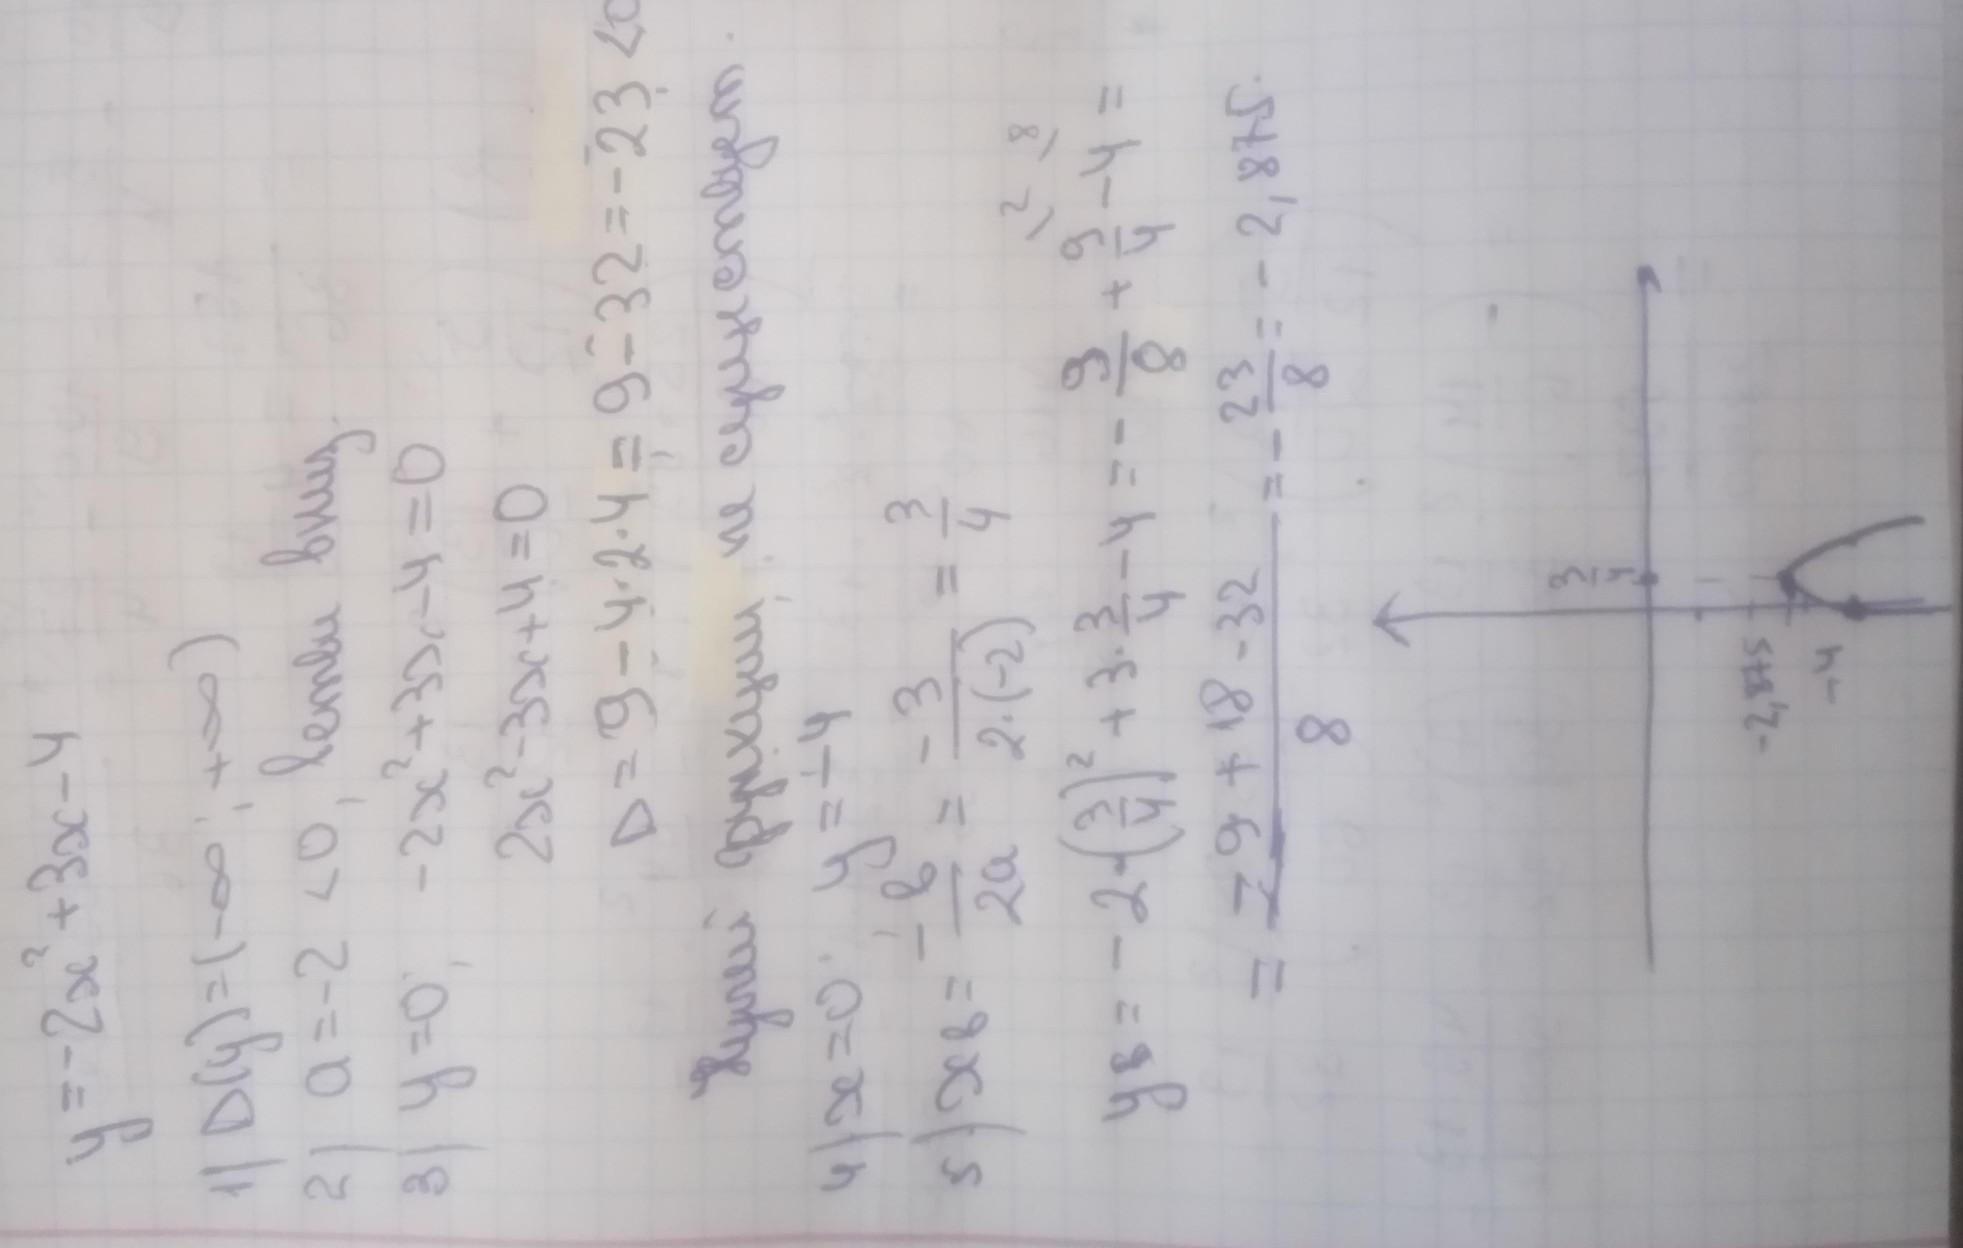 y=-2x²+3x-4
1) D(y)=(-∞; +∞)
2) a=-2 <0, ветви вниз.
3) y=0, -2x²+3x-4=0
2x²-3x+4=0
D=9-4·2·4=9-32=-23<0
Нулей функции не существует.
4) x=0. y=-4
5) xв= -b/2a = -3/2·(-2) = 3/4
yв= -2·(3/4)²+3·3/4-4=-9/8+9/4-4=
= -9+18-32/8 =-23/8=-2,875.
3/4
-2,875
-4